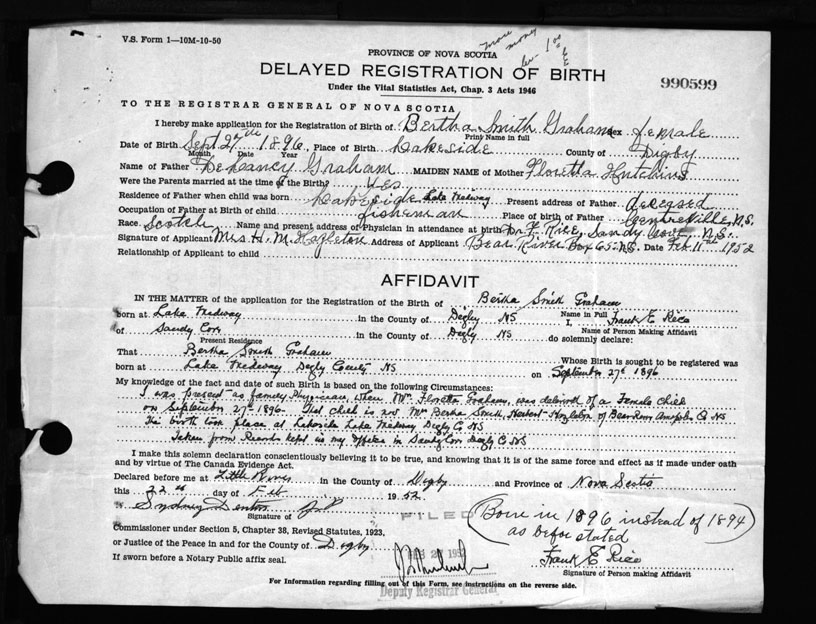 V.S. Form 1—10M-10-50
more money
PROVINCE OF NOVA SCOTIA
DELAYED REGISTRATION OF BIRTH
990599
Under the Vital Statistics Act, Chap. 3 Acts 1946
TO THE REGISTRAR GENERAL OF NOVA SCOTIA
I hereby make application for the Registration of Birth of Bertha Smith Graham Sex female
Print Name in full
Date of Birth Sept 27th 1896, Place of Birth Lakeside County of Digby
Month Date Year
Name of Father DeLancy Graham MAIDEN NAME of Mother Floretta Hutchins
Were the Parents married at time of the Birth? yes
Residence of Father when child was born Lakeside Lake Midway Present address of Father deceased
Occupation of Father at Birth of child fisherman Place of birth of Father Centreville, N.S.
Race Scotch Name and present address of Physician in attendance at birth Dr F. Rice, Sandy Cove, N.S.
Signature of Applicant Mrs. H. M. Hazleton Address of Applicant Bear River Box 65 N.S. Date Feb. 11th 1952
Relationship of Applicant to child
AFFIDAVIT
IN THE MATTER of the application for the Registration of Birth of Bertha Smith Graham
Name in Full
born at Lake Midway in the County of Digby NS I, Frank E Rice
Name of Person Making Affidavit
of Sandy Cove in the County of Digby NS do solemnly declare:
Present Residence
That Bertha Smith Graham Whose Birth is sought to be registered was
born at Lake Midway Digby County NS on September 27th 1896
My knowledge of the fact and date of such Birth is based on the following Circumstances:
I was present as family Physician when Mrs. Floretta Graham, was delivered of a Female Child
on September 27th 1896. That child is now Mrs Bertha Smith, Herbert Hazleton of Bear River Annapolis Co NS
The birth took place at Lakeside Lake Midway Digby Co NS
Taken from Records kept in my office in Sandy Cove Digby Co NS
I make this solemn declaration conscientiously believing it to be true, and knowing that it is of the same force and effect as if made under oath
and by virtue of The Canada Evidence Act.
Declared before me at Little River in the County of Digby and Province of Nova Scotia
this 22nd day of Feb 1952.
Sydney Denton J.P.
Signature of
FILED
(Born in 1896 instead of 1894)
as before stated
Commissioner under Section 5, Chapter 38, Revised Statutes, 1923,
or Justice of the Peace in and for the County of Digby
If sworn before a Notary Public affix seal.
Frank E Rice
Signature of Person making Affidavit
For Information regarding filling out of this Form, see instructions on the reverse side.
Deputy Registrar General